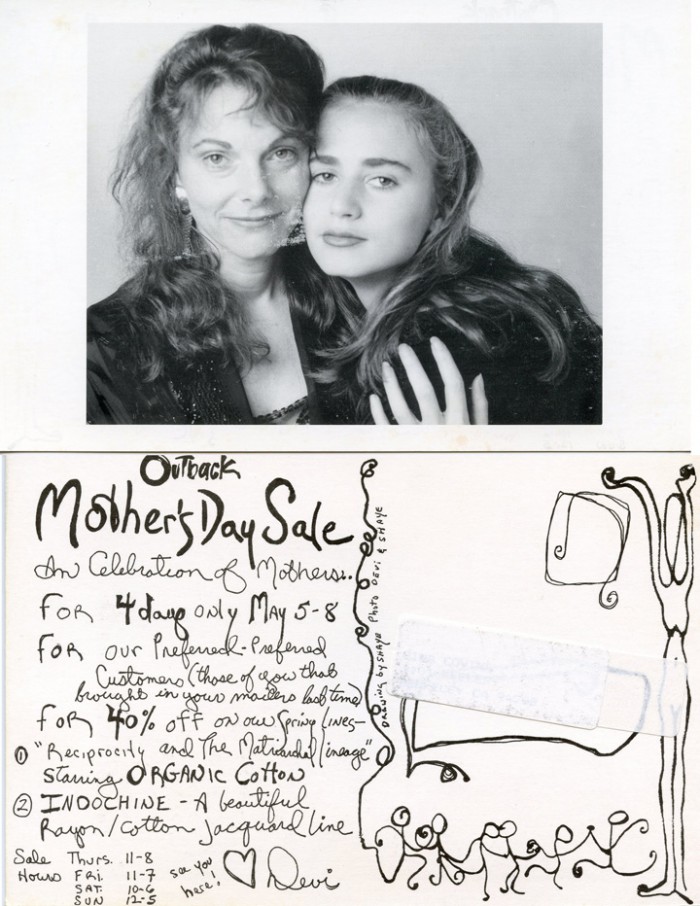 Outback
Mother's Day Sale
In Celebration of Mothers...
FOR 4 days only MAY 5-8
FOR our Preferred-Preferred
Customers (those of you that
brought in your mailers last time)
FOR 40% off on our Spring lines-
① "Reciprocity and The Matriarchal lineage"
Starring ORGANIC COTTON
② INDOCHINE - A beautiful
Rayon/cotton jacquard line
Sale Thurs. 11-8
Hours FRI. 11-7
SAT. 10-6
SUN 12-5
see you
here!
♡ Devi
DRAWING by SHAYE Photo DEVI & SHAYE